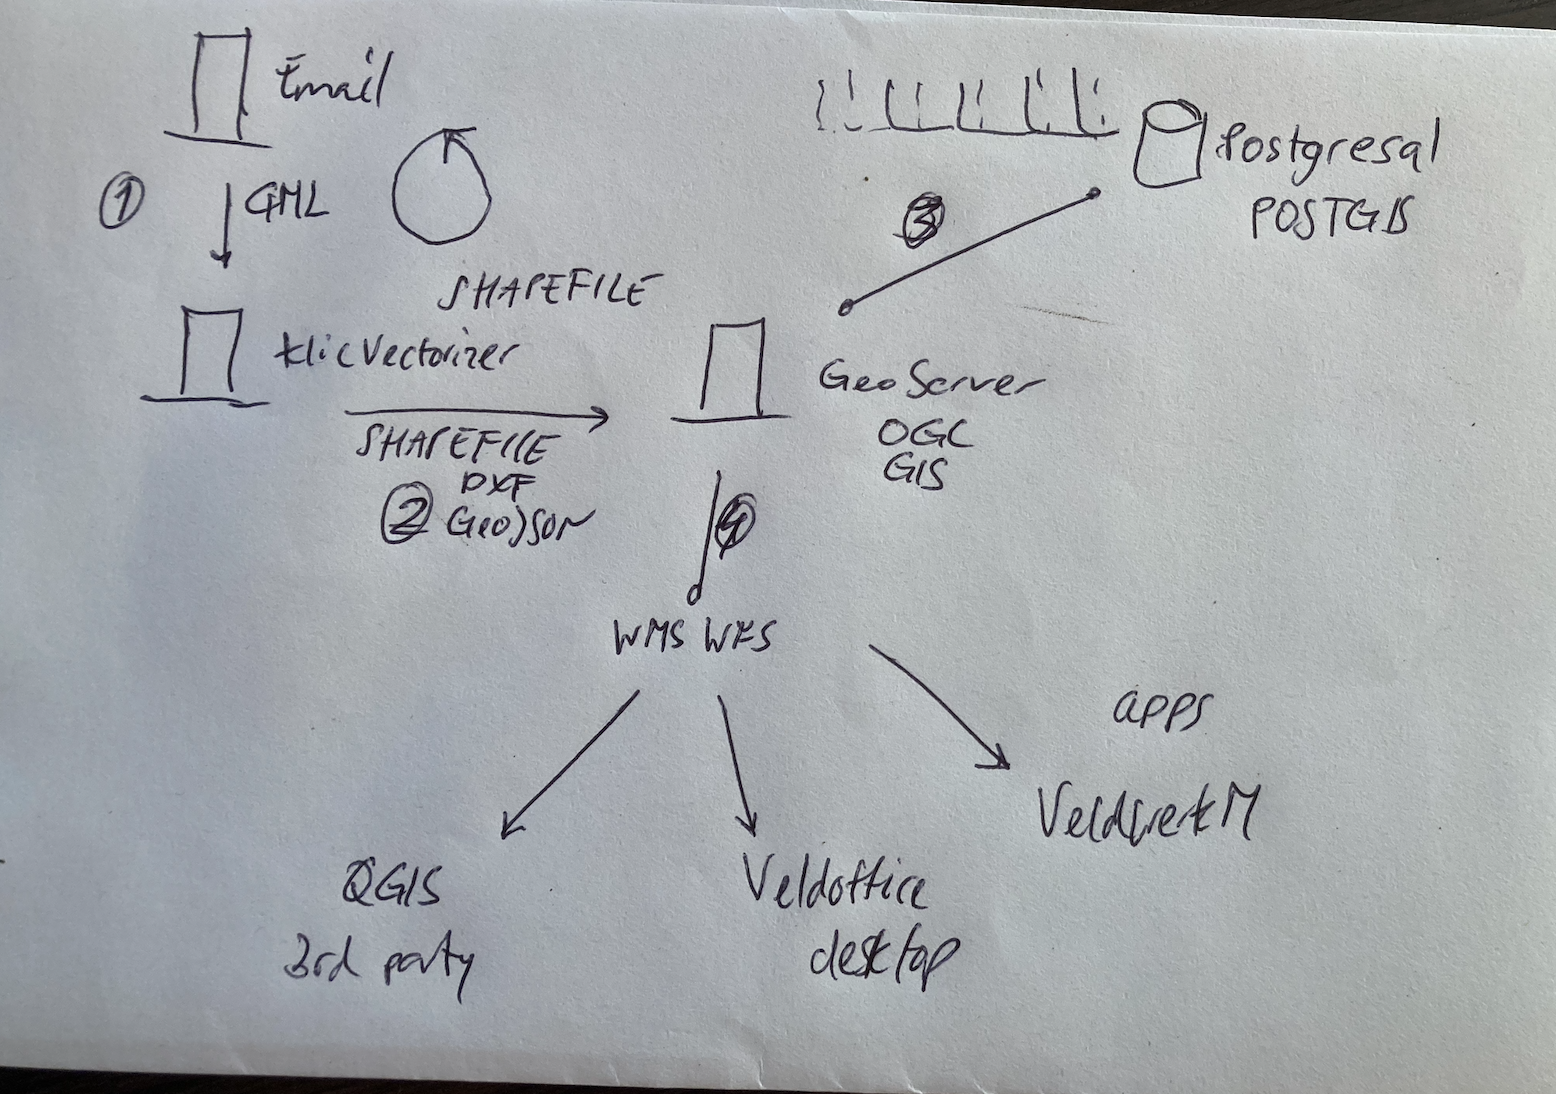 Email
① GML
SHAPEFILE
klicVectorizer
SHAPEFILE
DXF
② GeoJSON
③
Postgresql
POSTGIS
GeoServer
OGC
GIS
④
WMS WFS
QGIS
3rd party
Veldoffice
desktop
apps
VeldwerkM